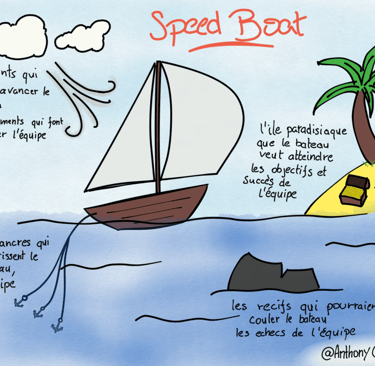 Speed Boat
qui
avancer le
qui font
l'équipe
l'île paradisiaque
que le bateau
veut atteindre
les objectifs et
succès de
l'équipe
ancres qui
le
les recifs qui pourraien
couler le bateau
les echecs de l'équipe
@Anthony